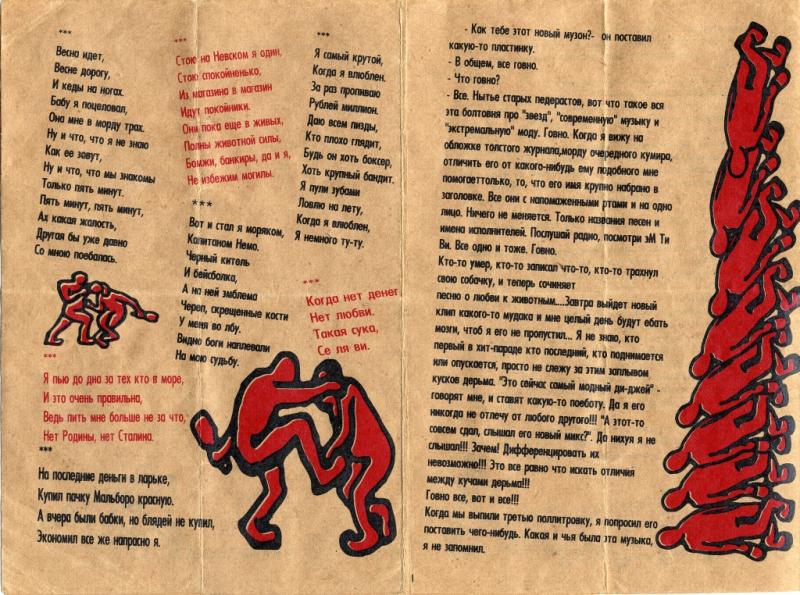 ***
Весна идет,
Весне дорогу,
И кеды на ногах.
Бабу я поцеловал,
Она мне в морду трах.
Ну и что, что я не знаю
Как ее зовут,
Ну и что, что мы знакомы
Только пять минут.
Пять минут, пять минут,
Ах какая жалость,
Другая бы уже давно
Со мною поебалась.
***
Я пью до дна за тех кто в море,
И это очень правильна,
Ведь пить мне больше не за что,
Нет Родины, нет Сталина.
***
На последние деньги в ларьке,
Купил пачку Мальборо красную.
А вчера были бабки, но блядей не купил,
Экономил все же напрасно я.
***
Стою на Невском я один,
Стою спокойненько,
Из магазина в магазин
Идут покойники.
Они пока еще в живых,
Полны животной силы,
Бомжи, банкиры, да и я,
Не избежим могилы.
***
Вот и стал я моряком,
Капитаном Немо.
Черный китель
И бейсболка,
А на ней эмблема
Череп, скрещенные кости
У меня во лбу.
Видно боги наплевали
На мою судьбу.
***
Я самый крутой,
Когда я влюблен.
За раз пропиваю
Рублей миллион.
Даю всем пизды,
Кто плохо глядит,
Будь он хоть боксер,
Хоть крупный бандит.
Я пули зубами
Ловлю на лету,
Когда я влюблен,
Я немного ту-ту.
***
Когда нет денег
Нет любви.
Такая сука,
Се ля ви.
- Как тебе этот новый музон?- он поставил
какую-то пластинку.
- В общем, все говно.
- Что говно?
- Все. Нытье старых педерастов, вот что такое вся
эта болтовня про "звезд", "современную" музыку и
"экстремальную" моду. Говно. Когда я вижу на
обложке толстого журнала,морду очередного кумира,
отличить его от какого-нибудь ему подобного мне
помогаеттолько, то, что его имя крупно набрано в
заголовке. Все они с напомаженными ртами и на одно
лицо. Ничего не меняется. Только названия песен и
имена исполнителей. Послушай радио, посмотри эМ Ти
Ви. Все одно и тоже. Говно.
Кто-то умер, кто-то записал что-то, кто-то трахнул
свою собачку, и теперь сочиняет
песню о любви к животным....Завтра выйдет новый
клип какого-то мудака и мне целый день будут ебать
мозги, чтоб я его не пропустил... Я не знаю, кто
первый в хит-параде кто последний, кто поднимается
или опускается, просто не слежу за этим заплывом
кусков дерьма. "Это сейчас самый модный ди-джей" -
говорят мне, и ставят какую-то поеботу. Да я его
никогда не отлечу от любого другого!!! "А этот-то
совсем сдал, слышал его новый микс?". Да нихуя я не
слышал!!! Зачем! Дифференцировать их
невозможно!!! Это все равно что искать отличия
между кучами дерьма!!!
Говно все, вот и все!!!
Когда мы выпили третью поллитровку, я попросил его
поставить чего-нибудь. Какая и чья была эта музыка,
я не запомнил.